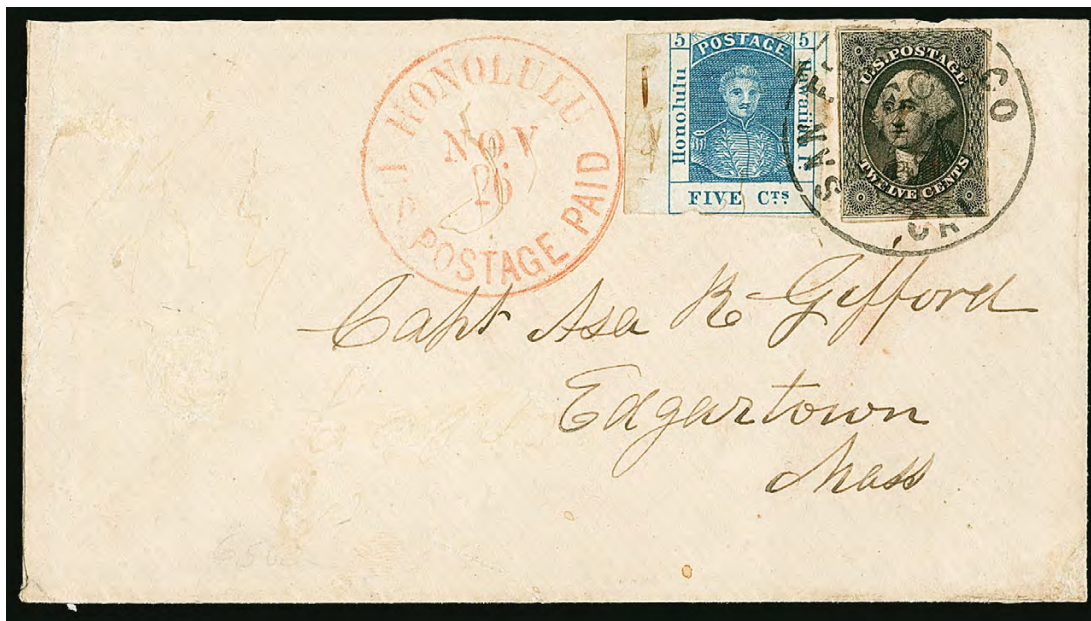 HONOLULU
NOV
26
U.S. POSTAGE PAID
5 POSTAGE 5
Honolulu
Hawaiian Is.
FIVE CTS
U.S. POSTAGE
TWELVE CENTS
SAN FRANCISCO
CAL
Capt Asa R Gifford
Edgartown
Mass